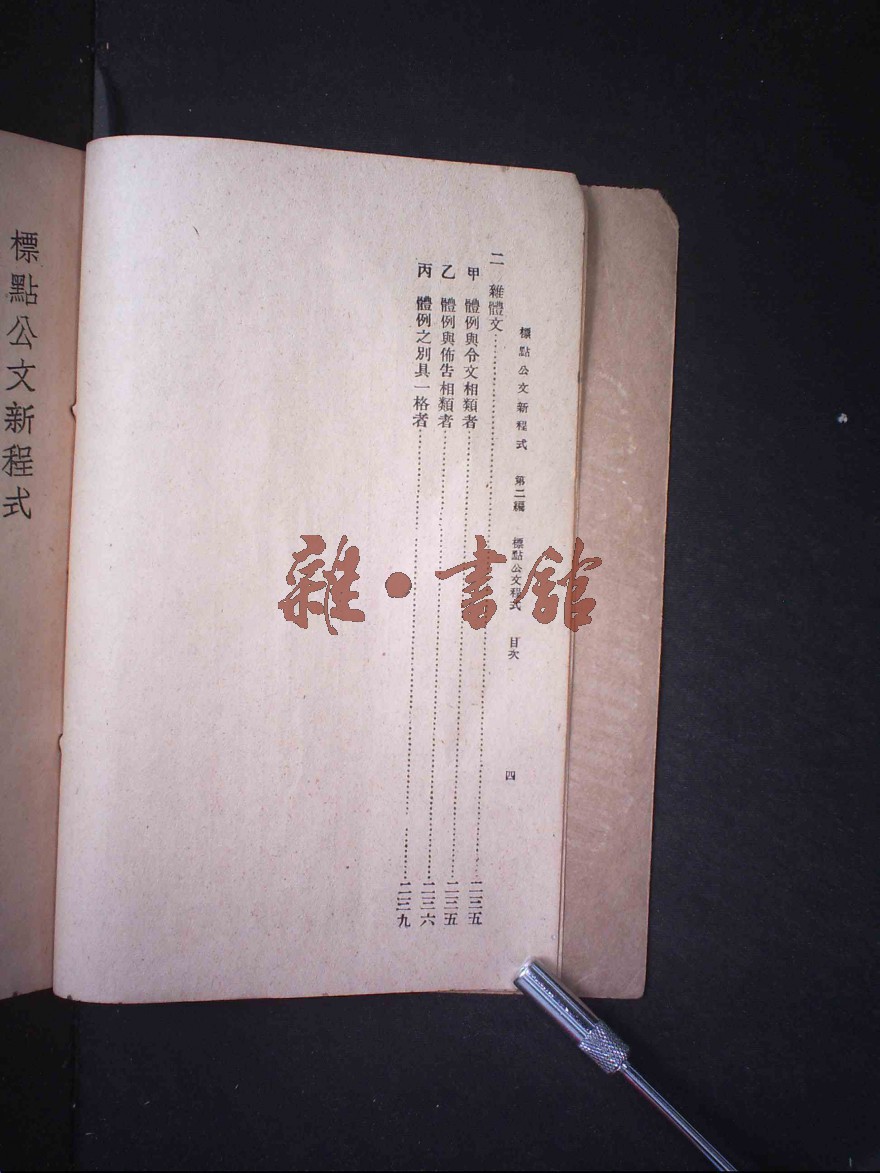 標點公文新程式　第二編　標點公文程式　目次　四
二　雜體文……二三五
甲　體例與令文相類者……二三五
乙　體例與佈告相類者……二三六
丙　體例之別具一格者……二三九
標點公文新程式
雜·書館